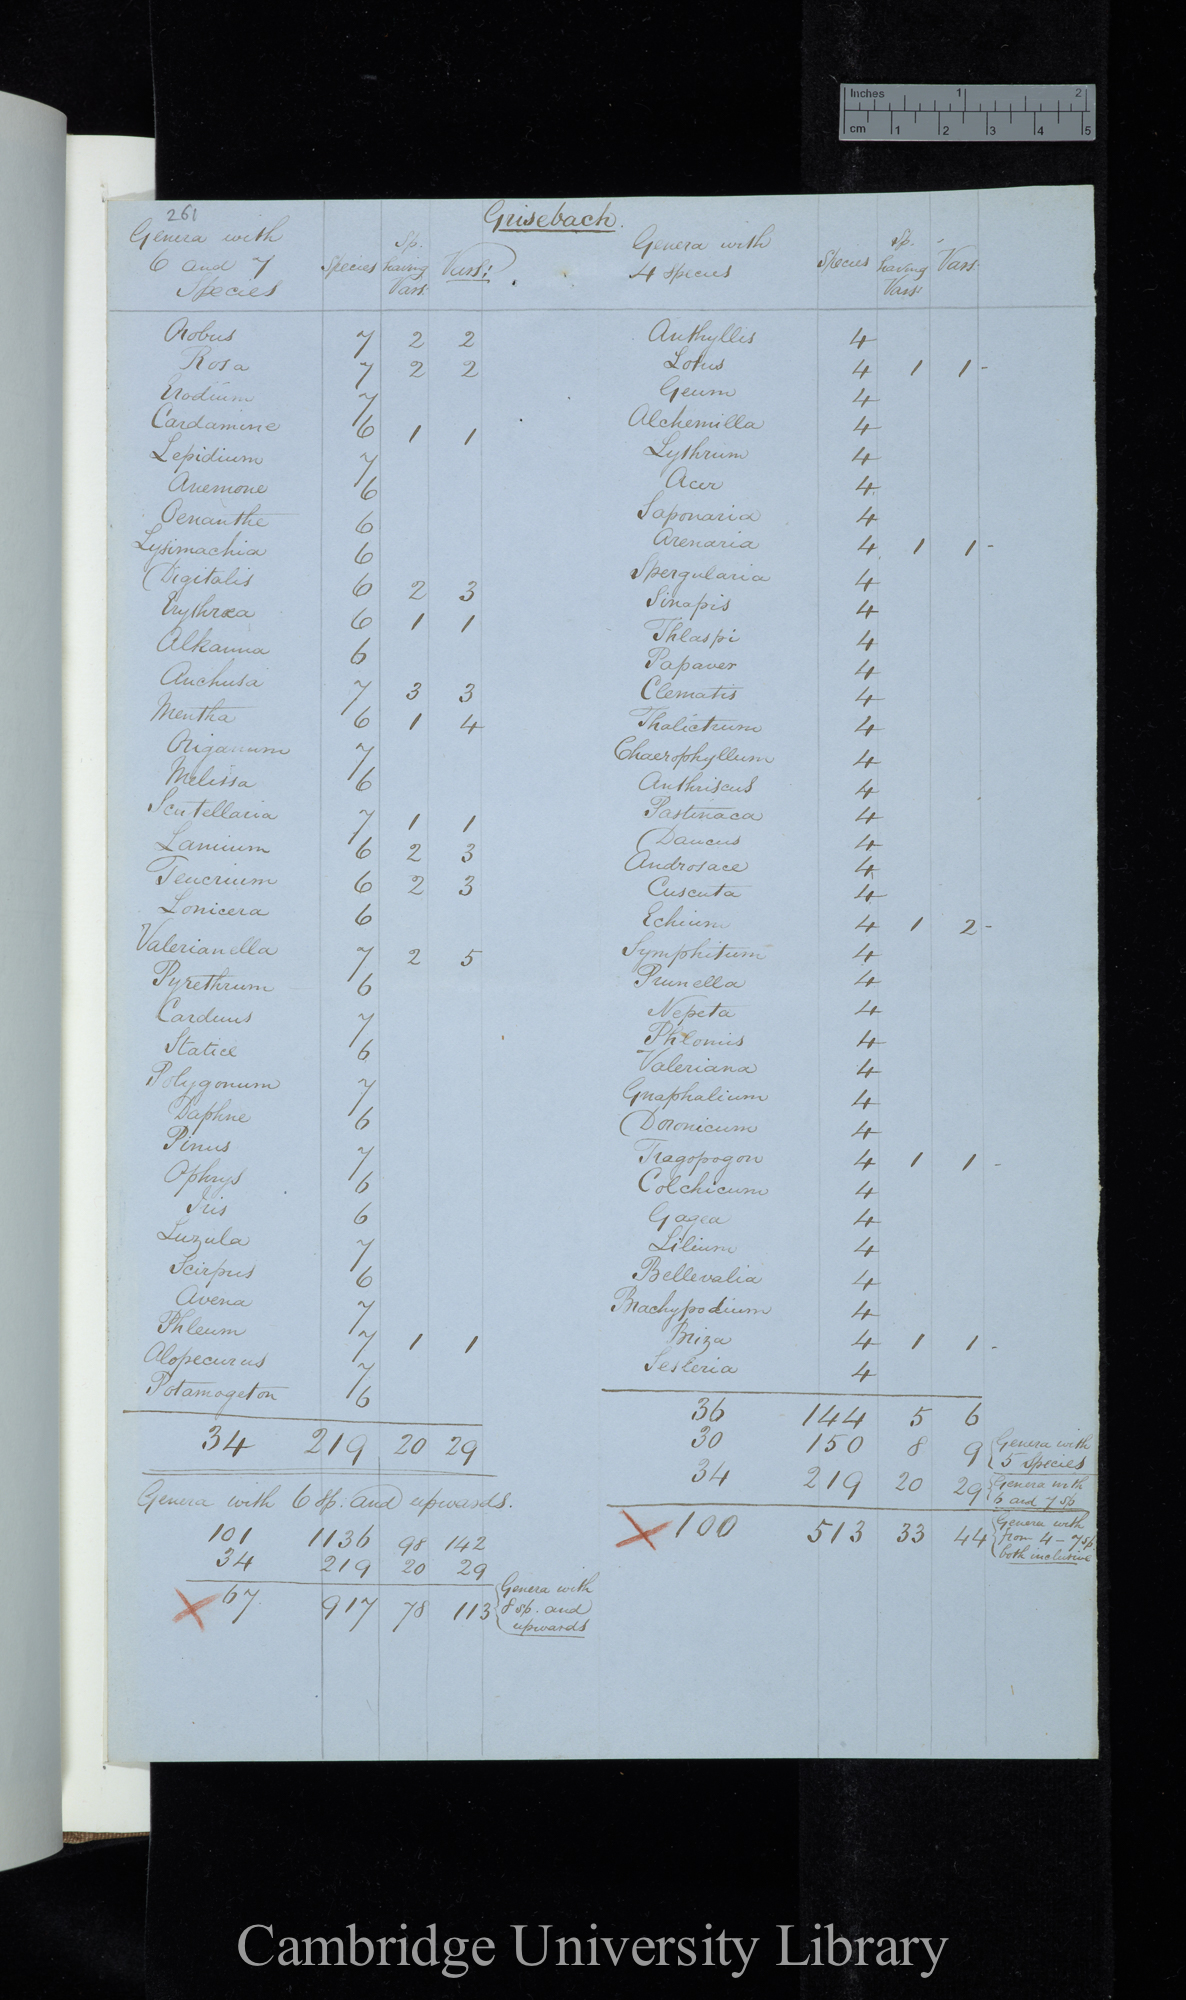 Inches 1 2
cm 1 2 3 4 5
261
Grisebach.
Genera with
6 and 7
Species
Species
Sp.
having
Vars.
Vars:
Orobus 7 2 2
Rosa 7 2 2
Erodium 7
Cardamine 6 1 1
Lepidium 7
Anemone 6
Oenanthe 6
Lysimachia 6
Digitalis 6 2 3
Erythræa 6 1 1
Alkanna 6
Anchusa 7 3 3
Mentha 6 1 4
Origanum 7
Melissa 6
Scutellaria 7 1 1
Lamium 6 2 3
Teucrium 6 2 3
Lonicera 6
Valerianella 7 2 5
Pyrethrum 6
Carduus 7
Statice 6
Polygonum 7
Daphne 6
Pinus 7
Ophrys 6
Iris 6
Luzula 7
Scirpus 6
Avena 7
Phleum 7 1 1
Alopecurus 7
Potamogeton 6
34 219 20 29
Genera with 6 sp. and upwards.
101 1136 98 142
34 219 20 29
67 917 78 113
Genera with
8 sp. and
upwards
Genera with
4 species
Species
sp.
having
Vars:
Vars.
Anthyllis 4
Lotus 4 1 1 -
Geum 4
Alchemilla 4
Lythrum 4
Acer 4
Saponaria 4
Arenaria 4 1 1 -
Spergularia 4
Sinapis 4
Thlaspi 4
Papaver 4
Clematis 4
Thalictrum 4
Chaerophyllum 4
Anthriscus 4
Pastinaca 4
Daucus 4
Androsace 4
Cuscuta 4
Echium 4 1 2 -
Symphitum 4
Prunella 4
Nepeta 4
Phlomis 4
Valeriana 4
Gnaphalium 4
Doronicum 4
Tragopogon 4 1 1 -
Colchicum 4
Gagea 4
Lilium 4
Bellevalia 4
Brachypodium 4
Briza 4 1 1 -
Sesleria 4
36 144 5 6
30 150 8 9 Genera with
5 species
34 219 20 29 Genera with
6 and 7 sp
100 513 33 44 Genera with
from 4 - 7 sp.
both inclusive
Cambridge University Library